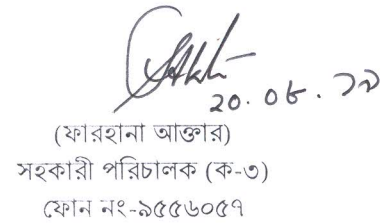 ২০.০৮.১৯
(ফারহানা আক্তার)
সহকারী পরিচালক (ক-৩)
ফোন নং-৯৫৫৬০৫৭